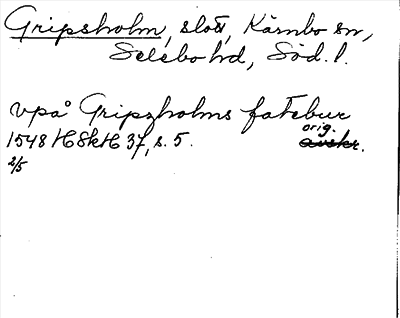 Gripsholm, slott, Kärnbo sn,
Selebo hd, Söd. l.
vpå Gripzholms fatebur
orig.
1548 HSkH 37, s. 5. avskr.
2/5